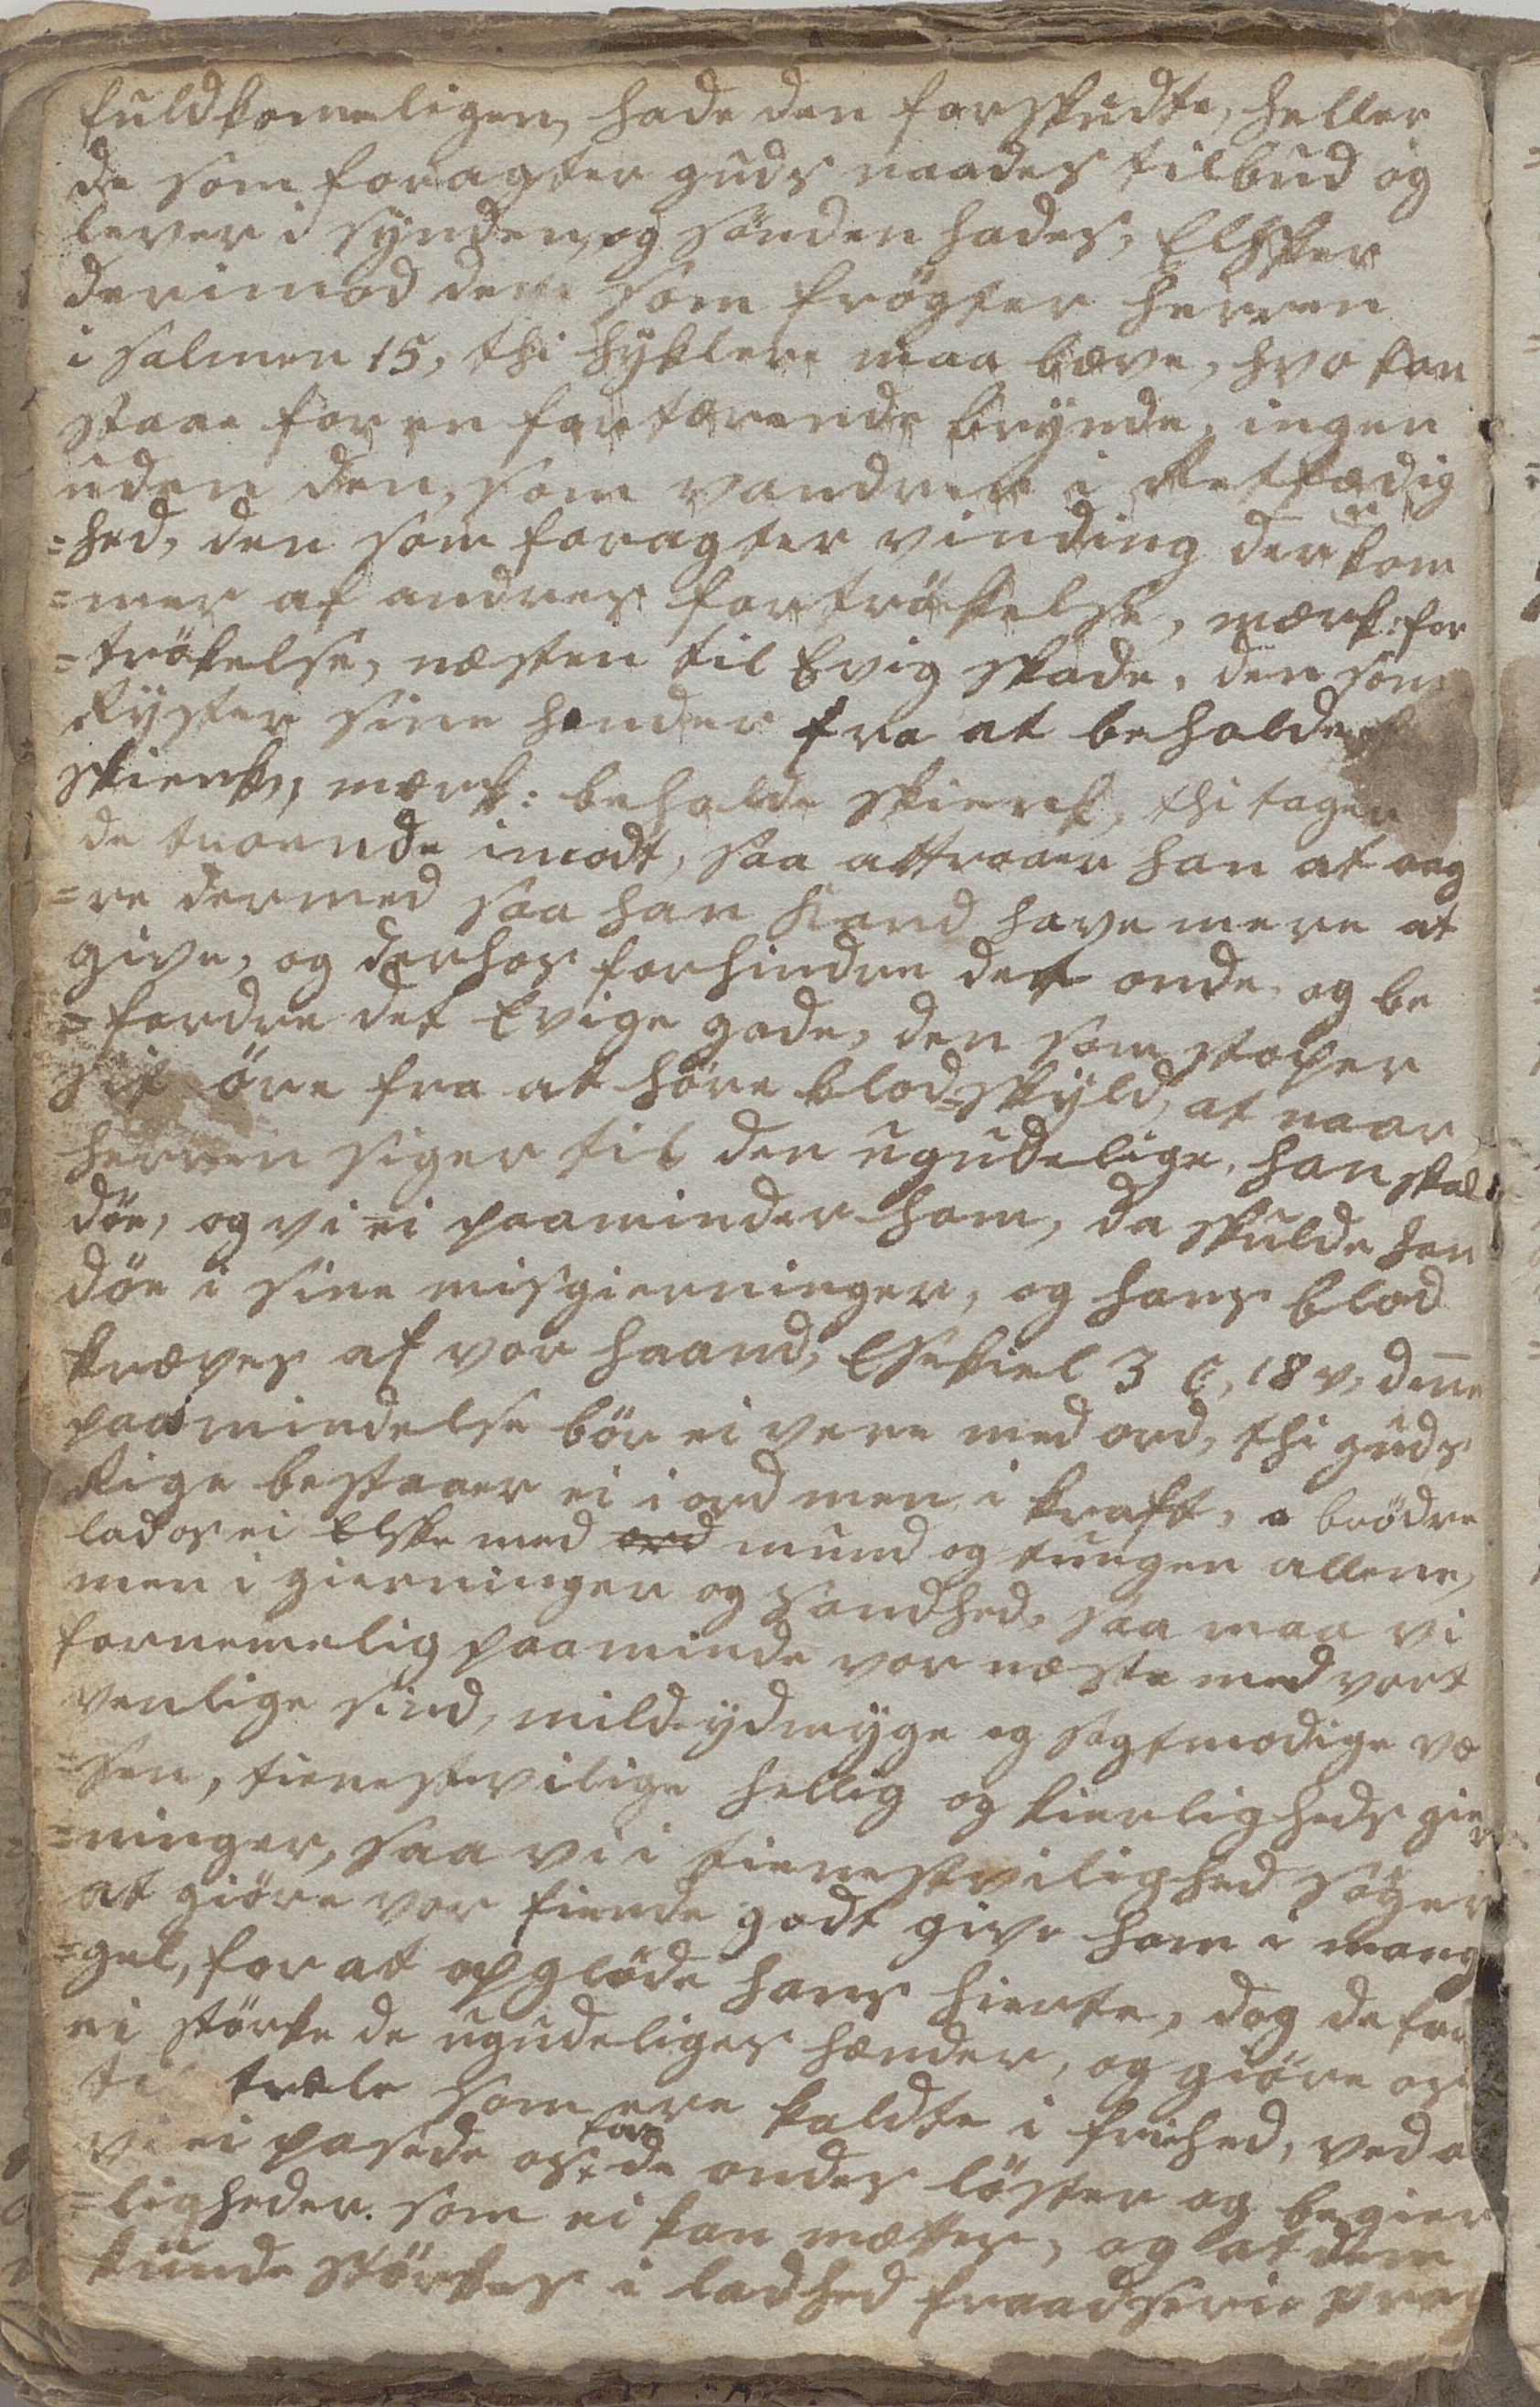 fuldkomeligen, hade den forskudte, heller
de som foragter guds naades tilbud og
lever i synden, og sönden hades, Elsker
derimod dem som frögter herren
i salmen 15, thi hyklere maa bæve, hvo kan
staae for en fortærende brynde, ingen
uden den, som vandrer i Retfædig
=hed, den som foragter vinding der kom
=mer af andres fortrökelse, mærk: for
=trökelse, næsten til Evig skade, den som
Ryster sine hender fra at beholde
skienk, mærk: beholde skienk, thi tager
de troende imodt, saa attraaer han at aag
=re dermed saa han kand have mere at
give, og derhos forhindre det onde, og be
=fordre det Evige gode, den som stoper
sit öre fra at höre blod-skyld, at naar
herren siger til den ugudelige, han skal
döe, og vi ei paaminder ham, da skulde han
döe i sine misgierninger, og hans blod
kræves af vor haand, Esekiel 3 C, 18 v, deñe
paamindelse bör ei være med ord, thi guds
Rige bestaaer ei i ord men i kraft, o brödre
lad os ei Elske med ord mund og tungen allene,
men i gierninger og sandhed, saa maa vi
fornemelig paaminde vor næste med vort
venlige sind, mild-ydmyge og sagtmodige væ
=sen, tienestvilige hellig og kierligheds gier
=ninger, saa vi i tienestvilighed söger
at giöre vor fiende godt give ham i mang
=gel, for at opglöde hans hierte, dog de for
ei störke de ugudeliges hænder, og giöre os
til træle som ere kaldte i frihed, ved at
vi ei pasede os for de ondes löster og begier
=ligheder. som ei kan mættes, og at dem
kunde störkes i ladhed fraadserie